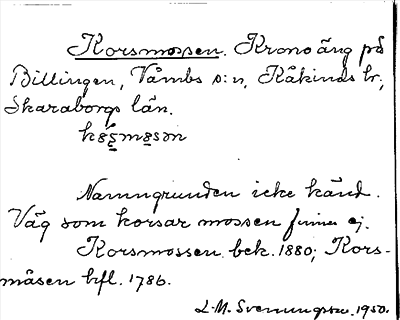 Korsmossen. Kronoäng på
Billingen, Våmbs s:n, Kåkinds hr,
Skaraborgs län.
Namngrunden icke känd.
Väg som korsar mossen finnes ej.
Korsmossen bek. 1880; Kors-
måsen hfl. 1786.
L-M. Svenungsson. 1950.